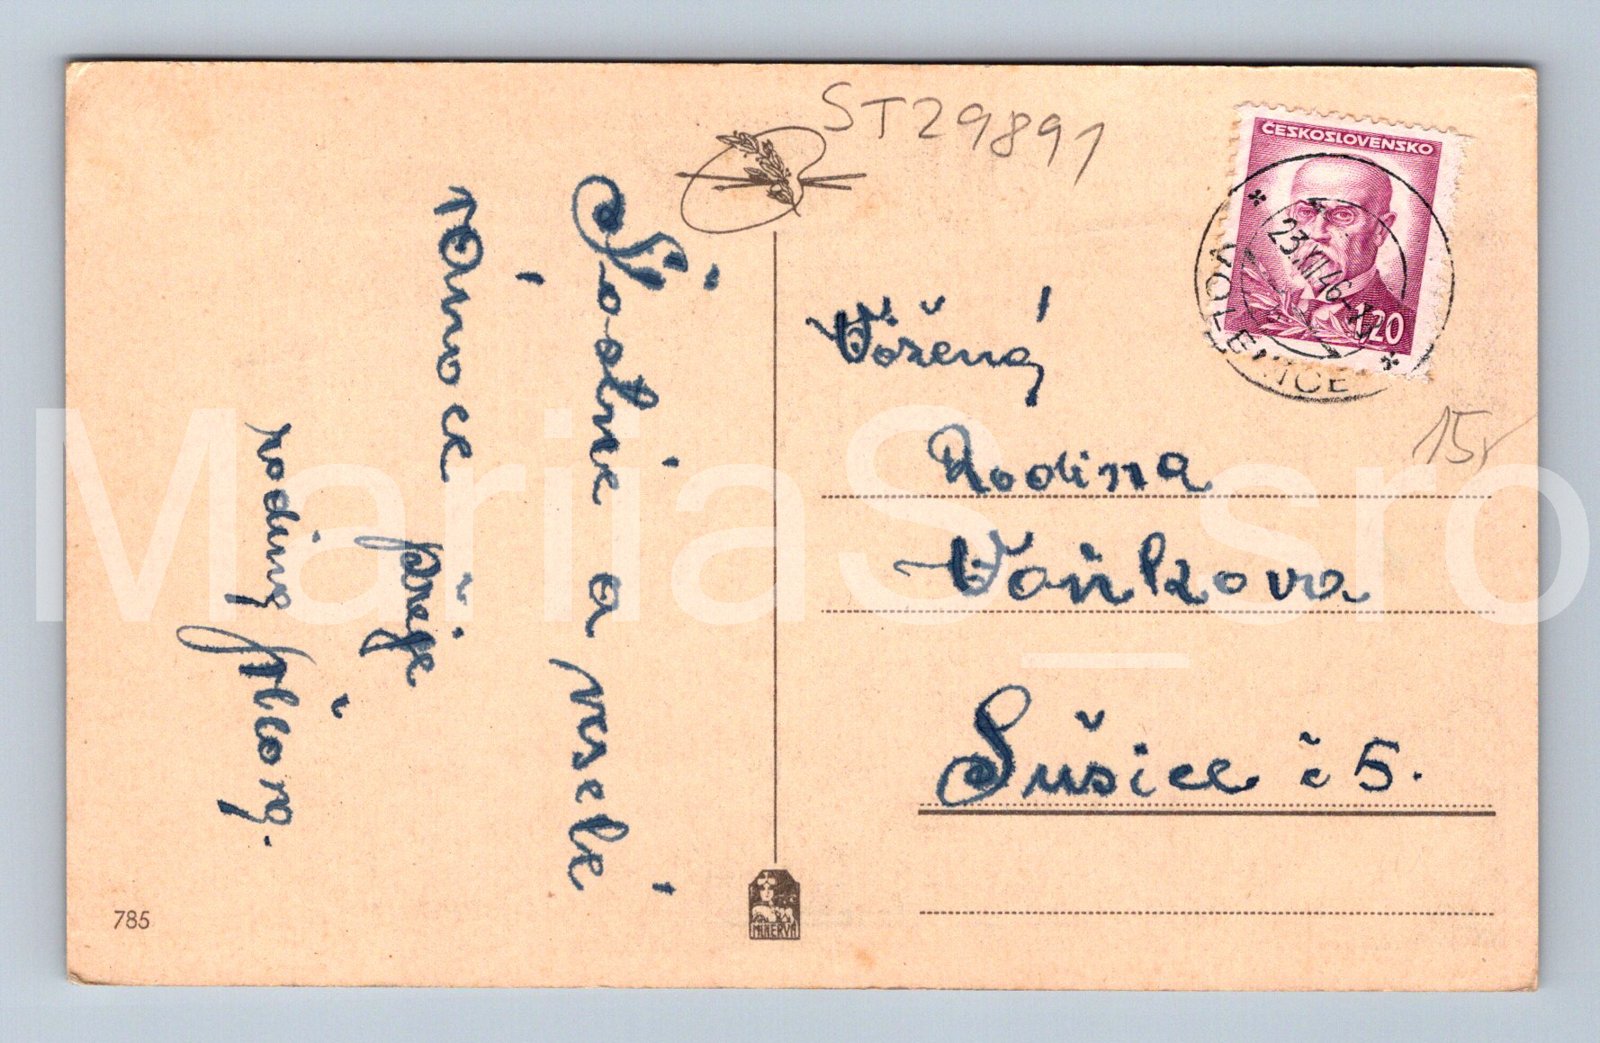 ST29891
ČESKOSLOVENSKO
1·20
23.XII.46-XV
VOLENICE
15,-
Šťastné a veselé
vánoce
přeje
rodina
Vážená
Rodina
Vaňkova
Sušice č 5.
785
MINERVA
MarijaS_sro